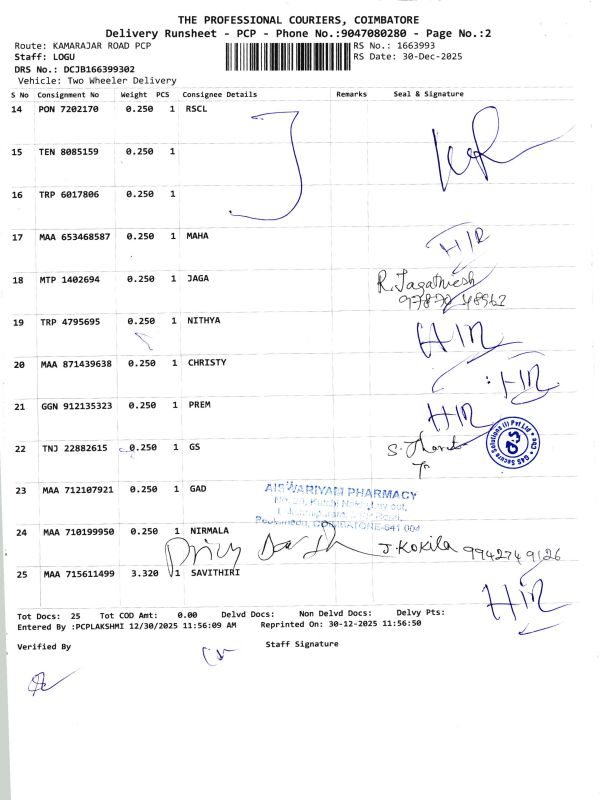 THE PROFESSIONAL COURIERS, COIMBATORE
Delivery Runsheet - PCP - Phone No.:9047080280 - Page No.:2
Route: KAMARAJAR ROAD PCP RS No.: 1663993
Staff: LOGU RS Date: 30-Dec-2025
DRS No.: DCJB166399302
Vehicle: Two Wheeler Delivery
S No Consignment No Weight PCS Consignee Details Remarks Seal & Signature
14 PON 7202170 0.250 1 RSCL
15 TEN 8085159 0.250 1
16 TRP 6017806 0.250 1
17 MAA 653468587 0.250 1 MAHA H/R
18 MTP 1402694 0.250 1 JAGA R. Jagathesh
19 TRP 4795695 0.250 1 NITHYA
20 MAA 871439638 0.250 1 CHRISTY
21 GGN 912135323 0.250 1 PREM
G4S Secure Solutions (I) Pvt Ltd
22 TNJ 22882615 0.250 1 GS
23 MAA 712107921 0.250 1 GAD AISWARIYAM PHARMACY
COIMBATORE-641 004
24 MAA 710199950 0.250 1 NIRMALA
J. Kokila 9942749126
25 MAA 715611499 3.320 1 SAVITHIRI
Tot Docs: 25 Tot COD Amt: 0.00 Delvd Docs: Non Delvd Docs: Delvy Pts:
Entered By :PCPLAKSHMI 12/30/2025 11:56:09 AM Reprinted On: 30-12-2025 11:56:50
Verified By Staff Signature